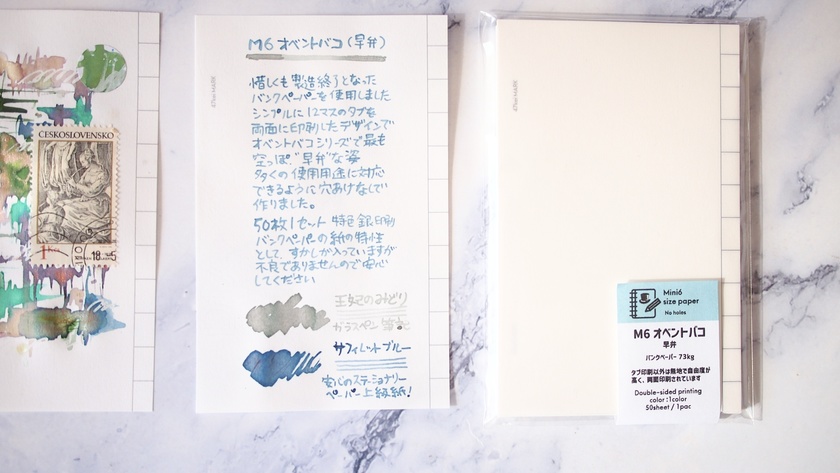 ČESKOSLOVENSKO
1 Kčs
M6 オベントバコ(早弁)
惜しくも製造終了となった
バンクペーパーを使用しました
シンプルに12マスのタブを
両面に印刷したデザインで
オベントバコシリーズで最も
空っぽ,"早弁"な姿
多くの使用用途に対応
できるように穴あけなしで
作りました。
50枚1セット 特色銀印刷
バンクペーパーの紙の特性
として、すかしが入っていますが
不良でありませんので安心
してください
王妃のみどり
ガラスペン 筆記
サフィレットブルー
安心のステーショナリー
ペーパー上級紙!
Mini6
size paper
No holes
M6 オベントバコ
早弁
バンクペーパー 73kg
タブ印刷以外は無地で自由度が
高く、両面印刷されています
Double-sided printing
color :1color
50sheet / 1pac